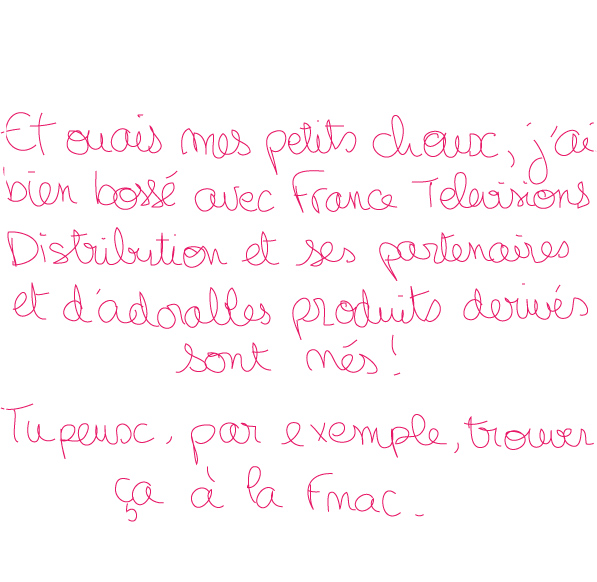 Et ouais mes petits choux, j'ai
bien bossé avec France Televisions
Distribution et ses partenaires
et d'adorables produits derivés
sont nés!
Tu peux, par exemple, trouver
ça à la Fnac.